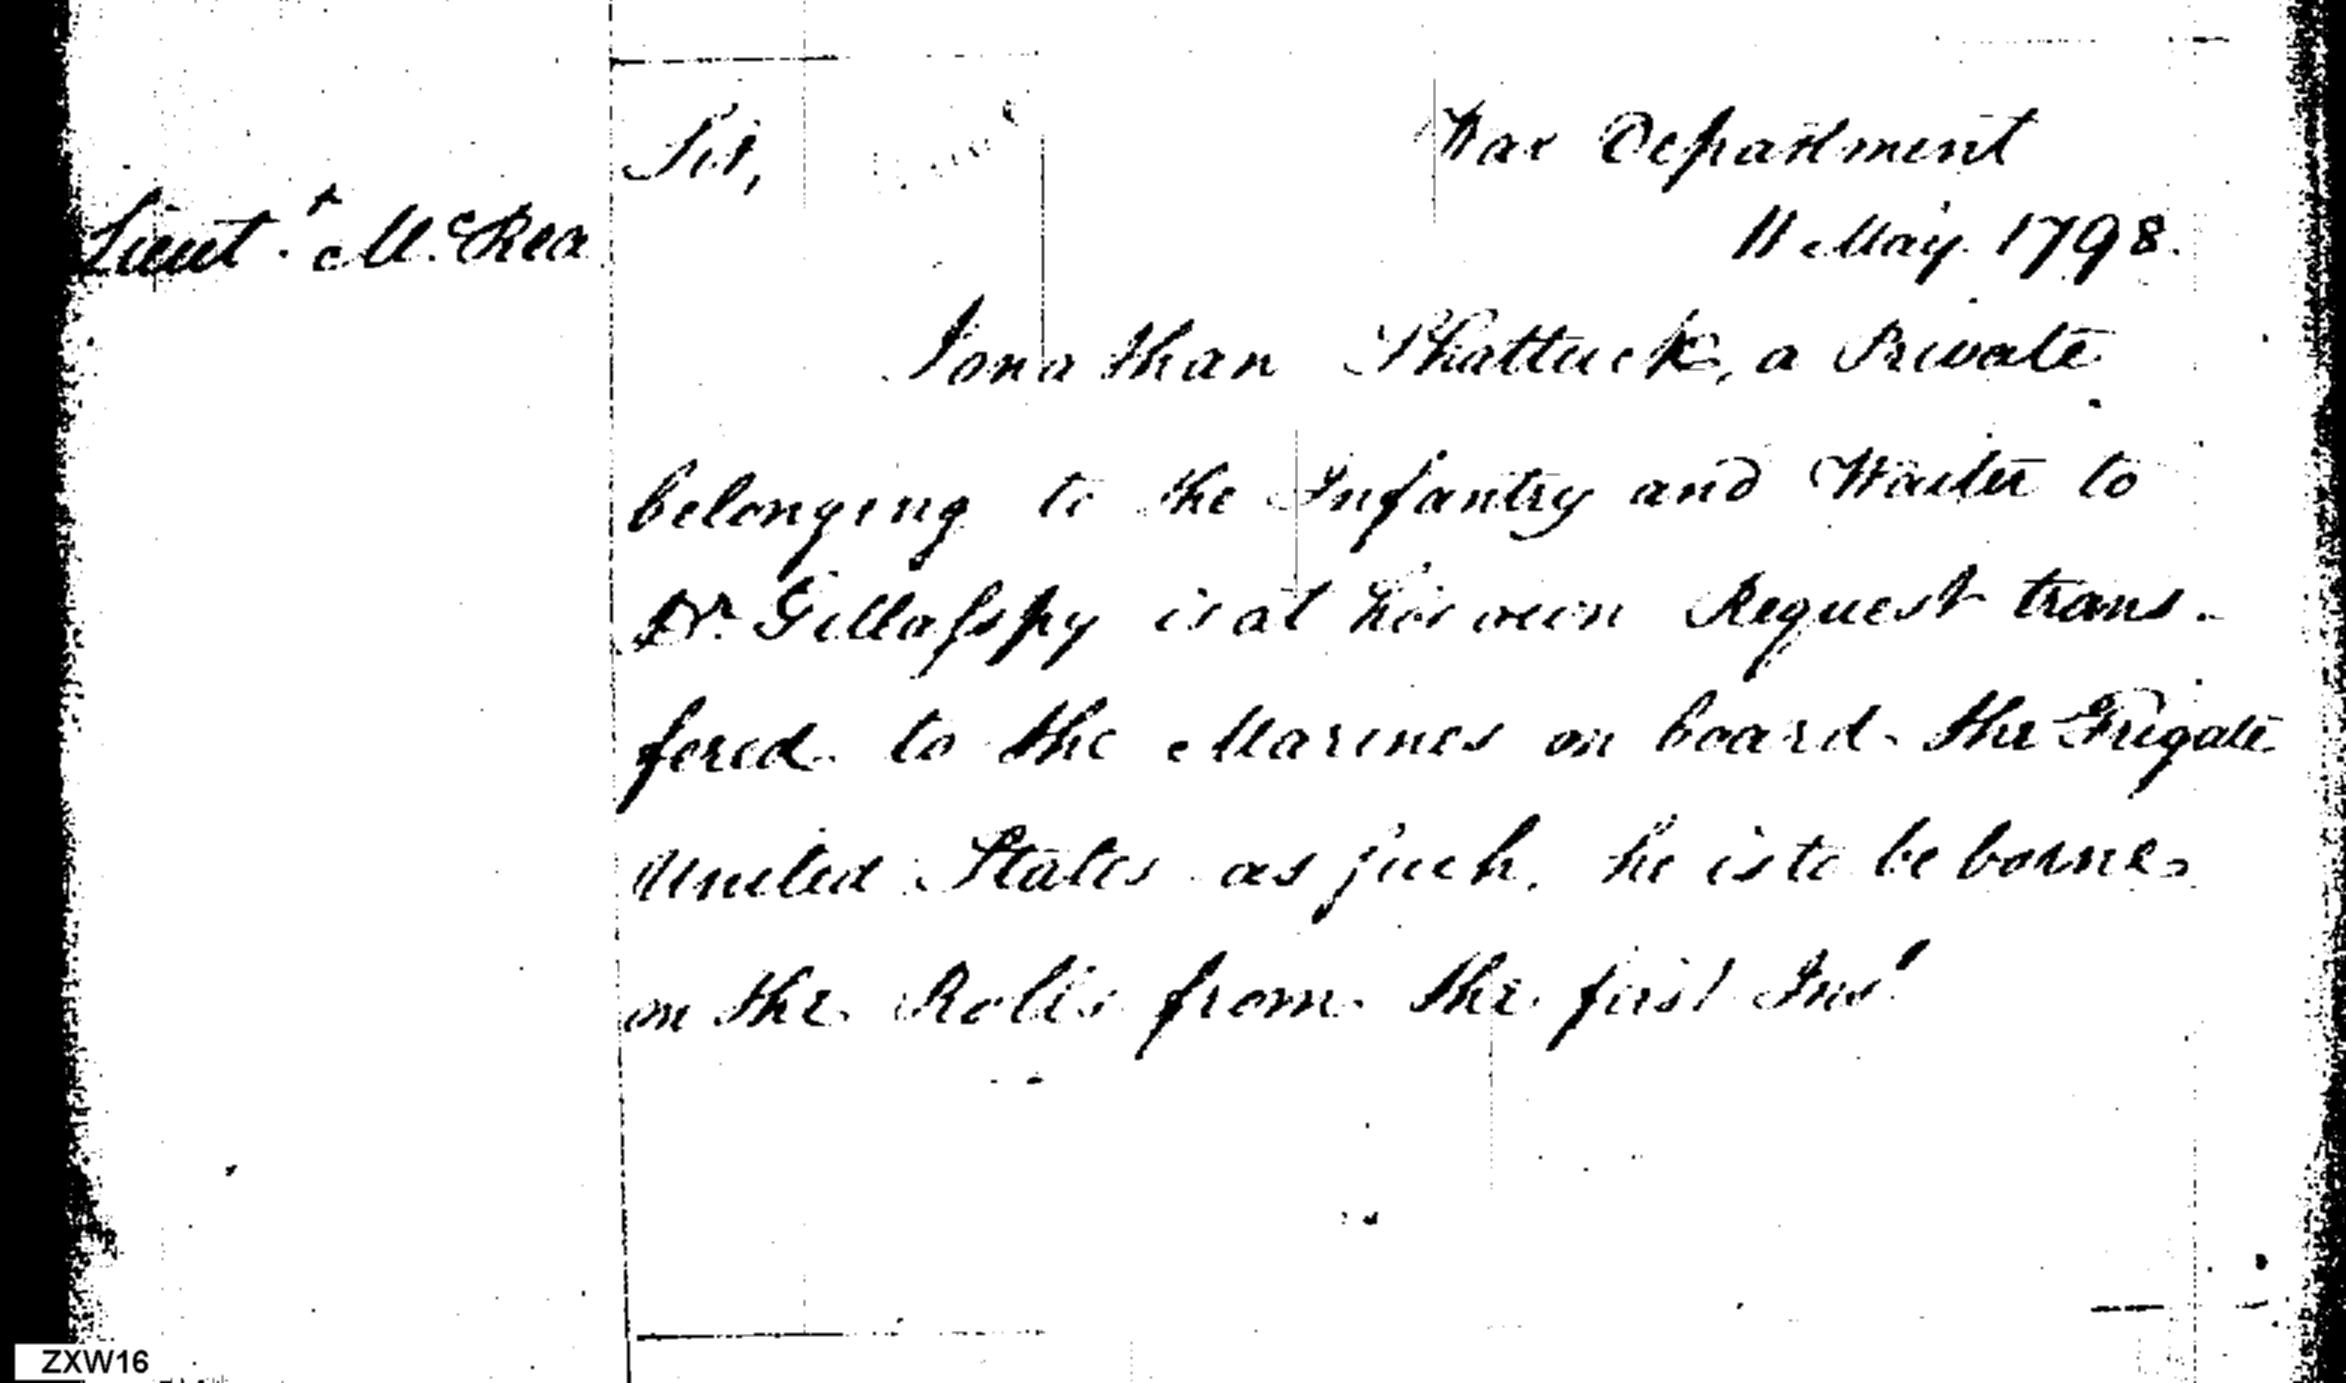 Sir,
War Department
Lieut.t McRea
11 May 1798.
Jonathan Shattuck, a Private
belonging to the Infantry and Waiter to
Dr. Gillasspy is at his own Request trans-
fered to the Marines on board the Frigate
United States as such, he is to be borne
on the Rolls from the first Inst
ZXW16